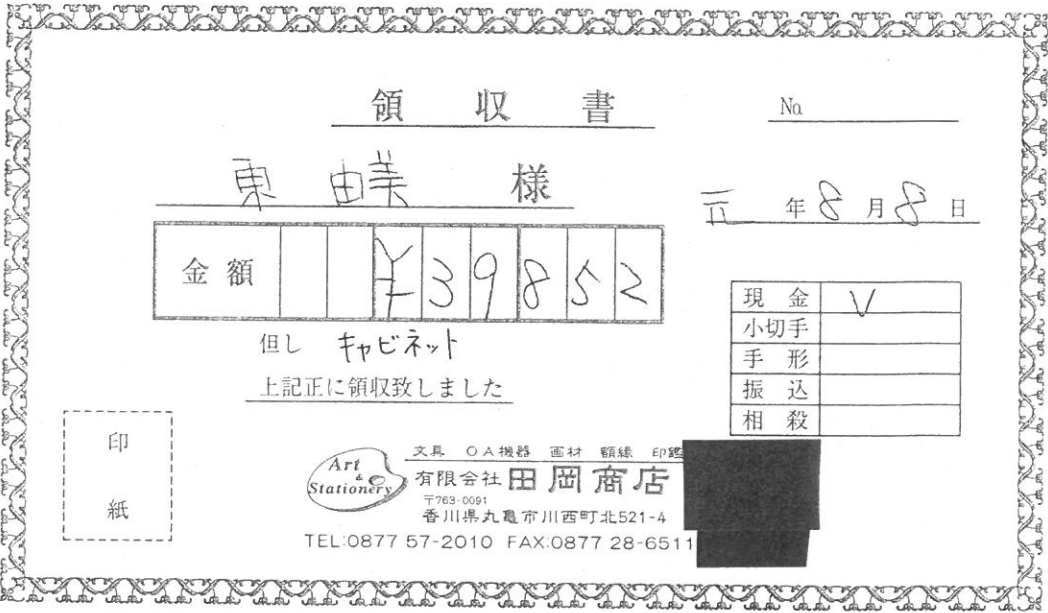 領収書
No.
東 由美 様
元年8月8日
金額 ¥39852
但し キャビネット
上記正に領収致しました
現金 V
小切手
手形
振込
相殺
印紙
Art & Stationery
文具 OA機器 画材 額縁 印鑑
有限会社田岡商店
〒763-0091
香川県丸亀市川西町北521-4
TEL:0877 57-2010 FAX:0877 28-6511